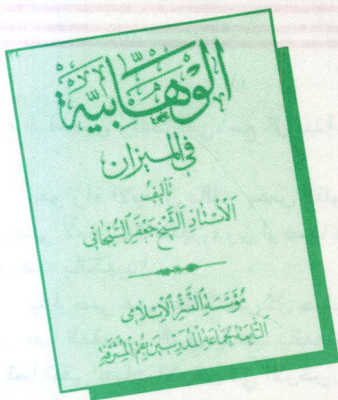 الوهابية
في الميزان
تأليف
الأستاذ الشيخ جعفر السبحاني
مؤسسة النشر الإسلامي
التابعة لجماعة المدرسين بقم المشرفة